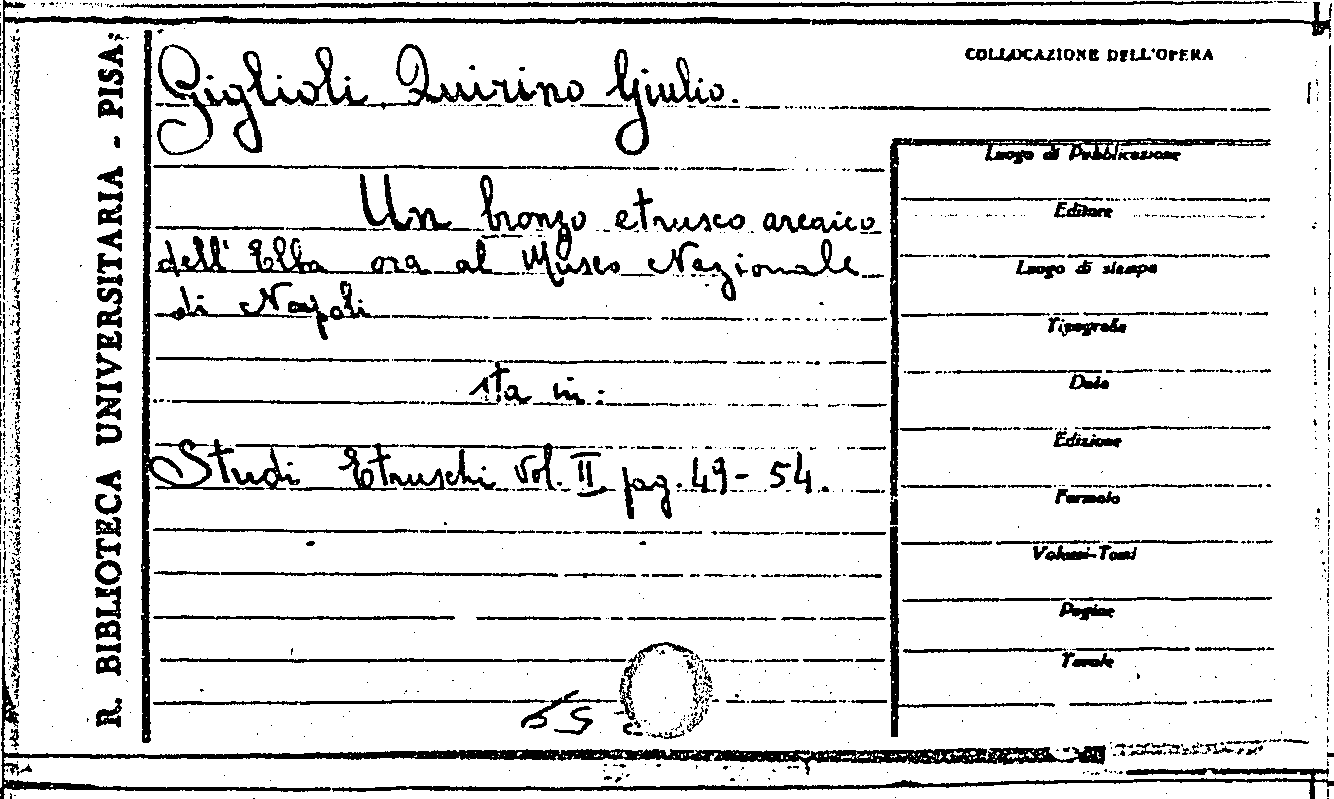 R. BIBLIOTECA UNIVERSITARIA - PISA
Giglioli Quirino Giulio.
Un bronzo etrusco arcaico
dell'Elba ora al Museo Nazionale
di Napoli
sta in:
Studi Etruschi vol. II pag. 49-54.
COLLOCAZIONE DELL'OPERA
Luogo di Pubblicazione
Editore
Luogo di stampa
Tipografia
Data
Edizione
Formato
Volumi-Tomi
Pagine
Tavole